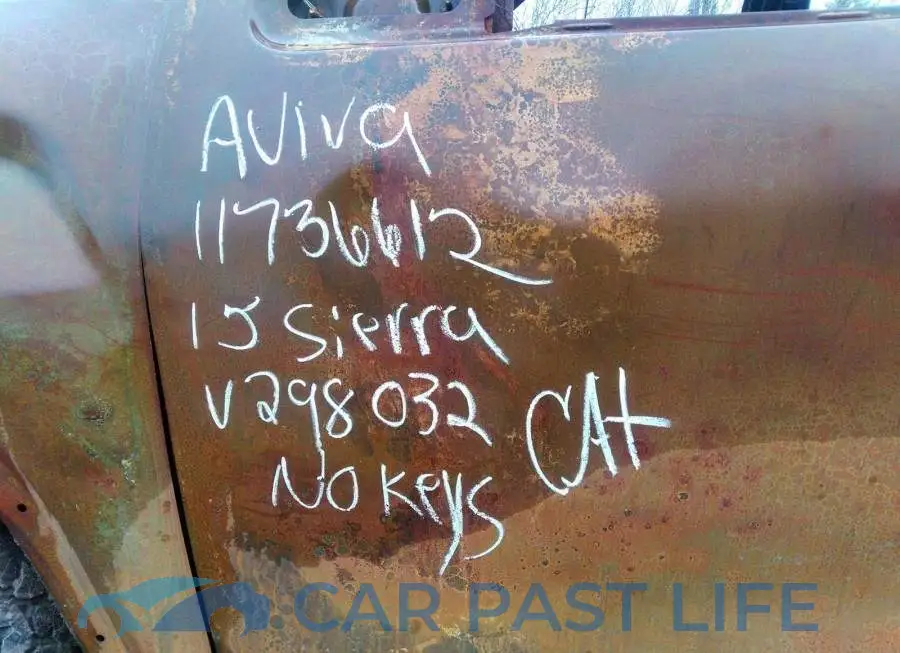 AViva
11736612
15 Sierra
V298032
CAt
No keys
CAR PAST LIFE